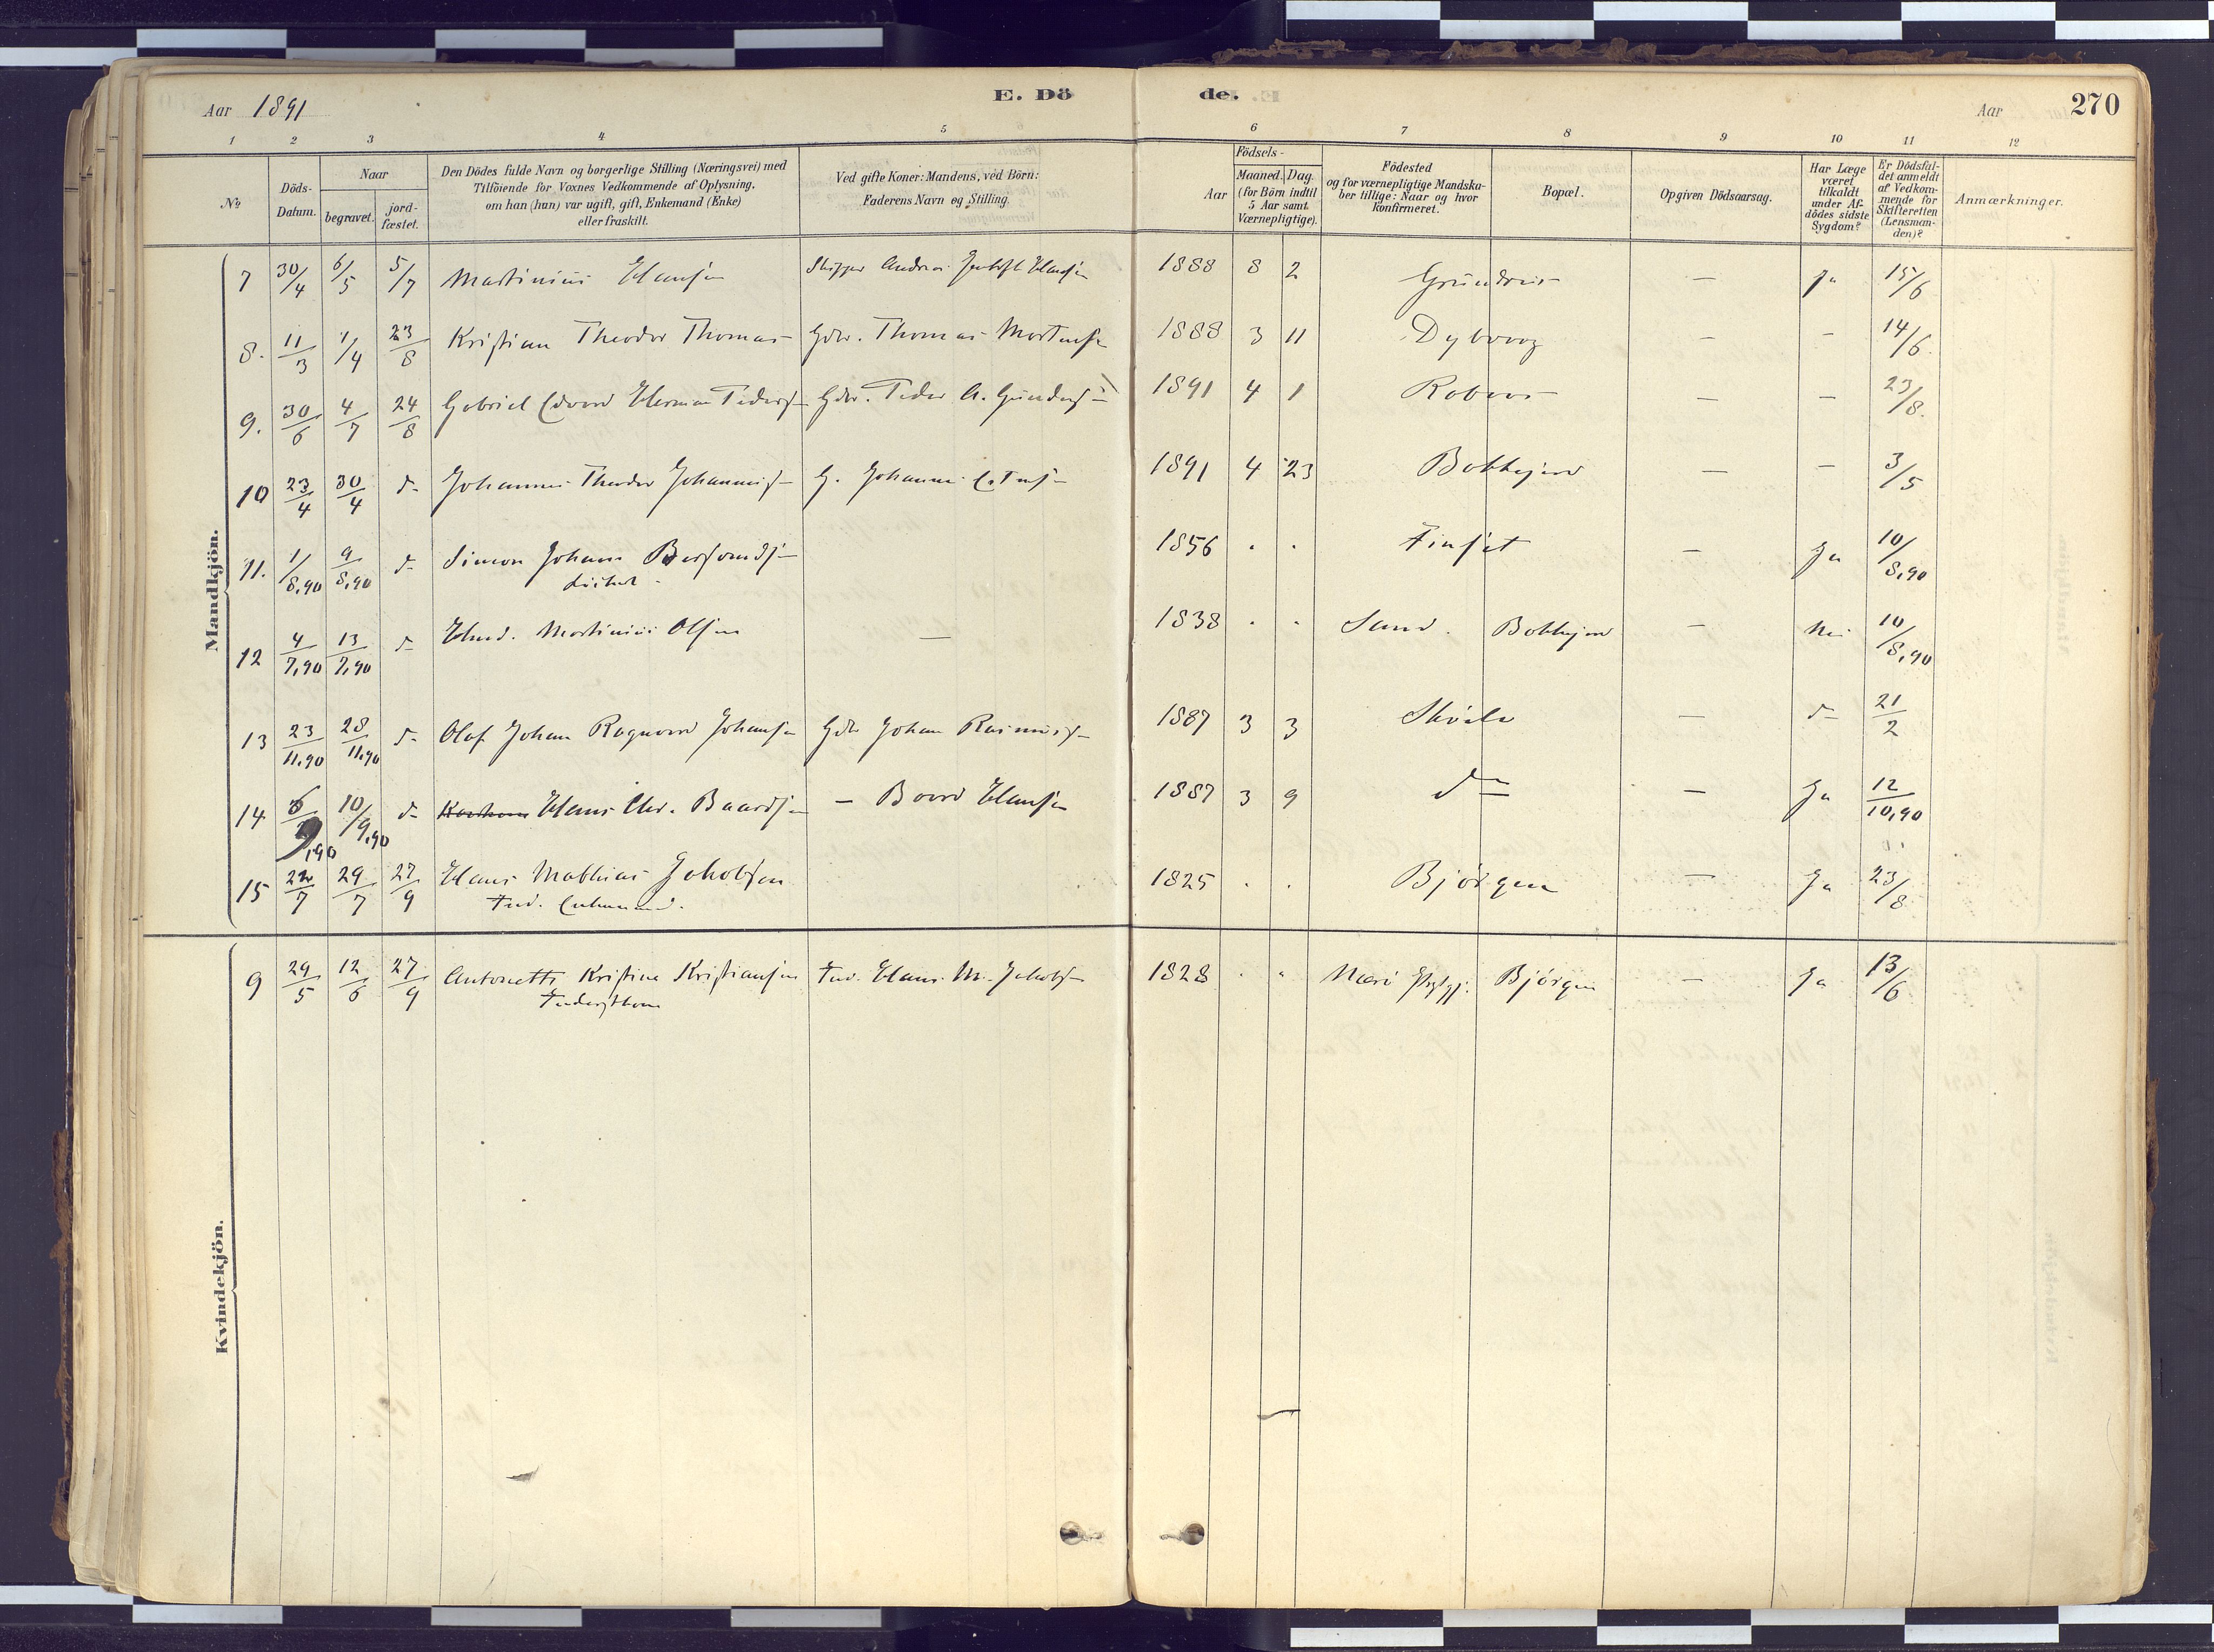 Aar 1891
E. Dö de.
Aar 270
1 2 3 4 5 6 7 8 9 10 11 12
No
Döds-Datum.
Naar
begravet.
jord-fæstet.
Den Dödes fulde Navn og borgerlige Stilling (Næringsvei) med
Tilföiende for Voxnes Vedkommende af Oplysning,
om han (hun) var ugift, gift, Enkemand (Enke)
eller fraskilt.
Ved gifte Koner: Mandens, ved Börn:
Faderens Navn og Stilling.
Födsels-
Aar
Maaned. Dag.
(for Börn indtil
5 Aar samt
Værnepligtige).
Födested
og for værnepligtige Mandska-
ber tillige: Naar og hvor
konfirmeret.
Bopæl.
Opgiven Dödsaarsag.
Har Læge
været
tilkaldt
under Af-
dödes sidste
Sygdom?
Er Dödsfal-
det anmeldt
af Vedkom-
mende for
Skifteretten
(Lensman-
den)?
Anmærkninger.
Mandkjön.
7 30/4 6/5 5/7 Martinius Hansen Skipper Andreas Hansen 1888 8 2 — Ja 15/6
8. 11/3 1/4 23/8 Kristian Theodor Thomas- Gdbr. Thomas Mortens 1888 3 11 Dybvaag — — 14/6
9. 30/6 4/7 24/8 Gabriel Edvard Herman Peders- Gdbr. Peder A. Gunders- 1891 4 1 — — 23/8.
10 23/4 30/4 d- Johannes Theodor Johannes- G. Johannes 1891 4 23 — — 3/5
11. 1/8,90 9/8,90 d- Simon Johan 1856 " " Finset — Ja 10/8,90
12 4/7,90 13/7,90 d- Martinius Olsen — 1838 " " Sand. — Nei 10/8,90
13 23/11,90 28/11,90 d- Olaf Johan Ragnvard Johansen Gdb Johan Rasmus- 1887 3 3 — d- 21/2
14 6/9,90 10/9,90 d- Hans Chr. Baardsen — Baard Hansen 1887 3 9 do — Ja 12/10,90
15 22/7 29/7 27/9 Hans Mathias Jakobsen 1825 " " Bjørgen — Ja 23/8
Ind. Enkemand.
Kvindekjön.
9 29/5 12/6 27/9 Antonette Kristine Kristiansen Ind. Hans M. Jakobs- 1828 " " Nærö Bjørgen — Ja 13/6
Inderstkone